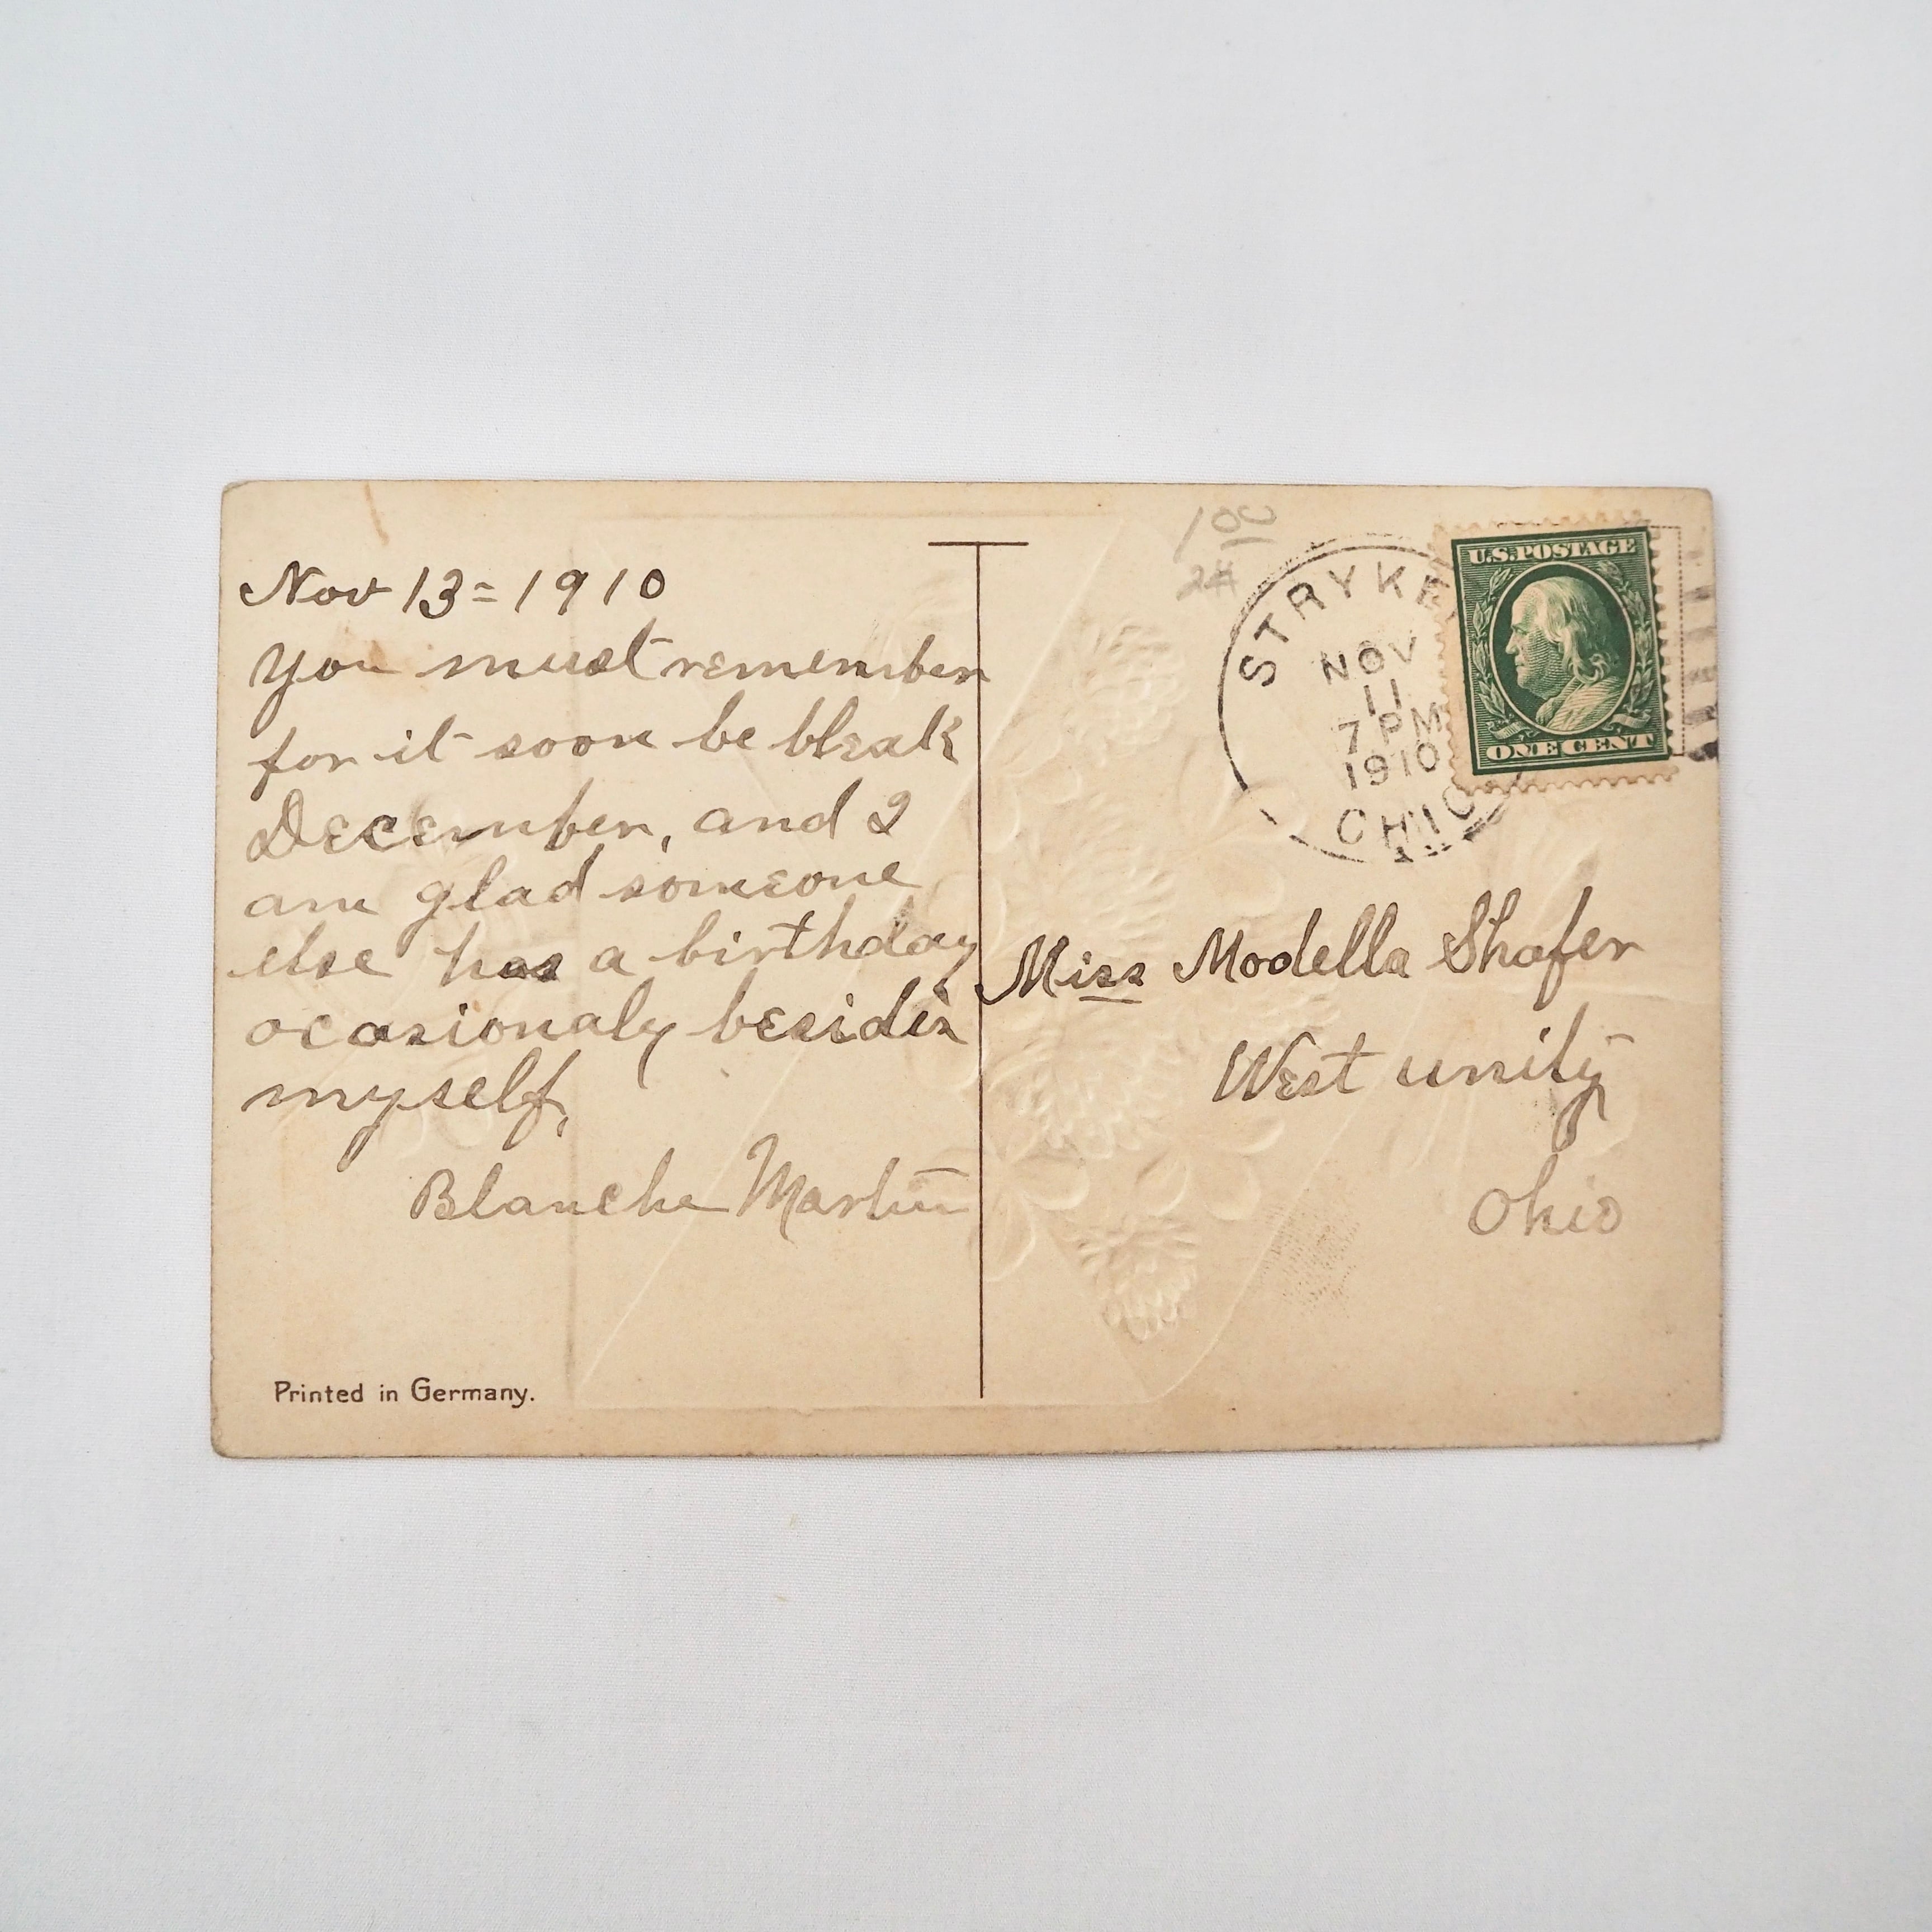 Nov 13 = 1910
You must remember
for it soon be bleak
December, and I
am glad someone
else has a birthday
ocasionaly besides
myself,
Blanche Martin
Printed in Germany.
100
2#
STRYKE
NOV
11
7 PM
1910
OHIO
U.S. POSTAGE
ONE CENT
Miss Modella Shafer
West unity
Ohio